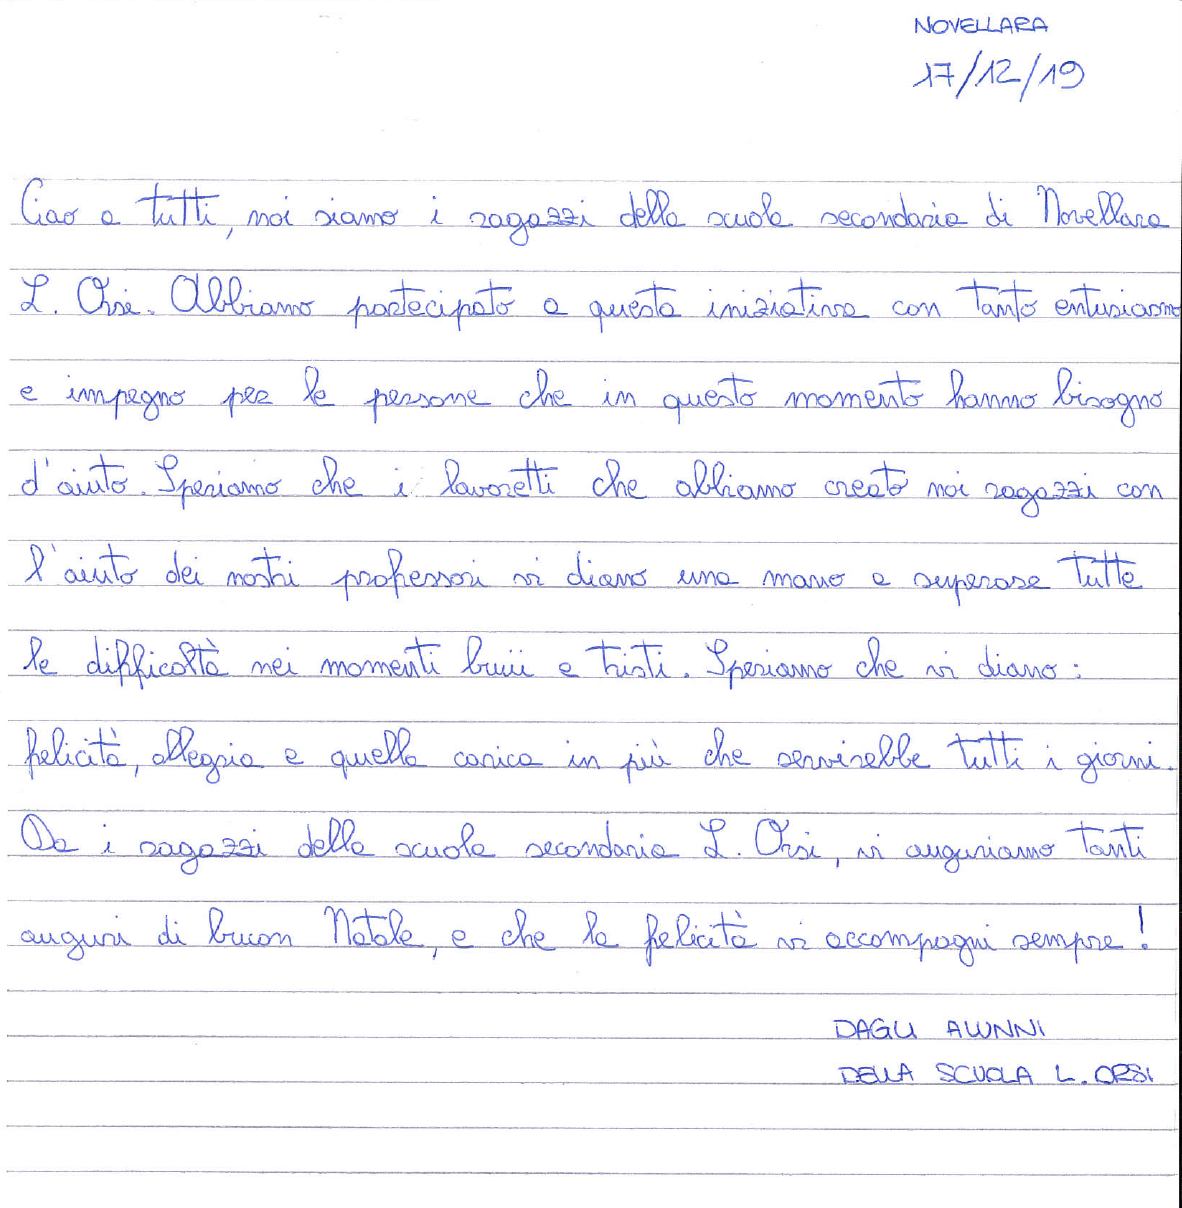 NOVELLARA
17/12/19
Ciao a tutti, noi siamo i ragazzi della scuola secondaria di Novellara
L. Orsi. Abbiamo partecipato a questa iniziativa con tanto entusiasmo
e impegno per le persone che in questo momento hanno bisogno
d'aiuto. Speriamo che i lavoretti che abbiamo creato noi ragazzi con
l'aiuto dei nostri professori vi diano una mano a superare tutte
le difficoltà nei momenti buii e tristi. Speriamo che vi diano:
felicità, allegria e quella carica in più che servirebbe tutti i giorni.
Da i ragazzi della scuola secondaria L. Orsi, vi auguriamo tanti
auguri di buon Natale, e che la felicità vi accompagni sempre!
DAGLI ALUNNI
DELLA SCUOLA L. ORSI